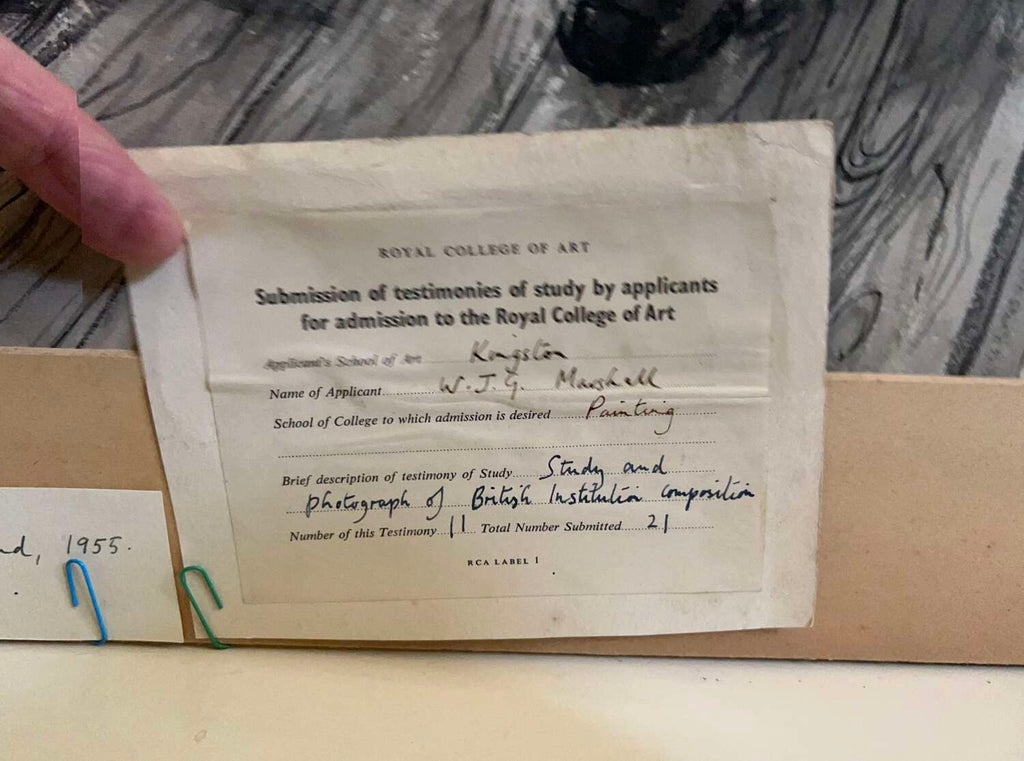 ROYAL COLLEGE OF ART
Submission of testimonies of study by applicants
for admission to the Royal College of Art
Applicant's School of Art Kingston
Name of Applicant W.J.G. Marshall
School of College to which admission is desired Painting
Brief description of testimony of Study Study and
photograph of British Institution composition
Number of this Testimony 11 Total Number Submitted 21
RCA LABEL 1
1955.